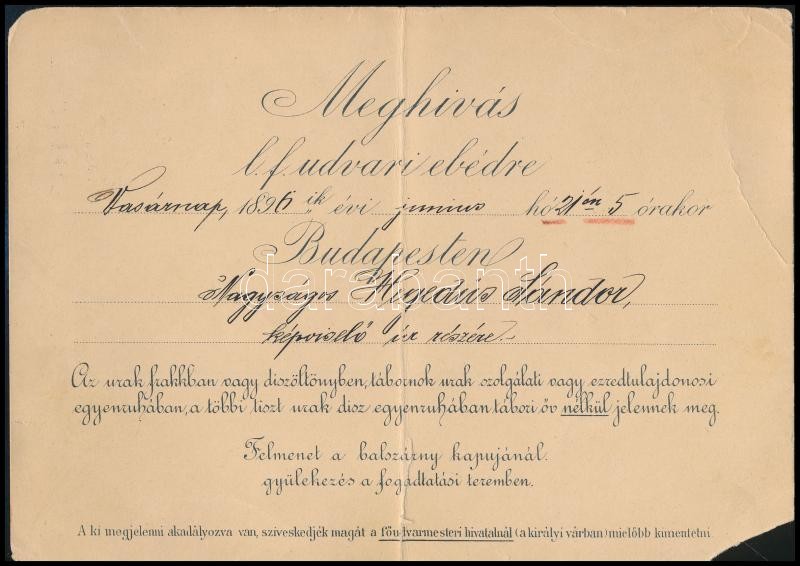 Meghivás
l. f. udvari ebédre
Vasárnap, 1896 ik évi junius hó 21én 5 órakor
Budapesten
darabanth
Nagyságos Hegedüs Sándor,
képviselő úr részére.-
Az urak frakkban vagy diszöltönyben, tábornok urak szolgálati vagy ezredtulajdonosi
egyenruhában, a többi tiszt urak disz egyenruhában tábori öv nélkül jelennek meg.
Felmenet a balszárny kapujánál.
gyülekezés a fogadtatási teremben.
A ki megjelenni akadályozva van, sziveskedjék magát a főudvarmesteri hivatalnál (a királyi várban) mielőbb kimenteni